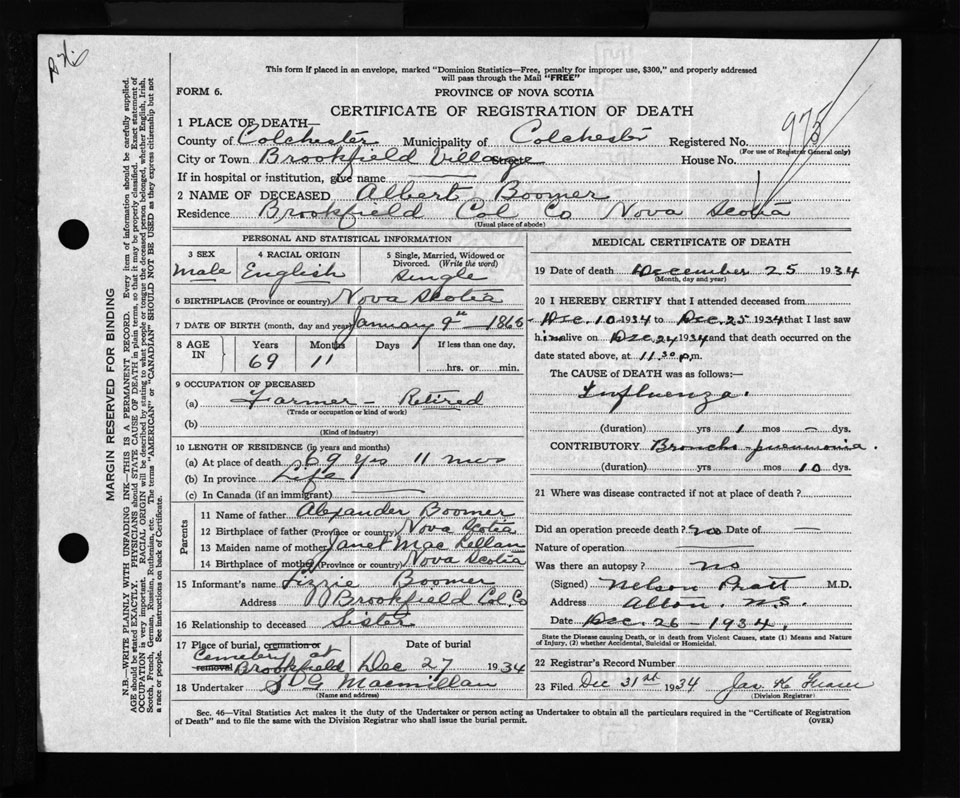 This form if placed in an envelope, marked "Dominion Statistics—Free, penalty for improper use, $300," and properly addressed
will pass through the Mail "FREE"
FORM 6.
PROVINCE OF NOVA SCOTIA
CERTIFICATE OF REGISTRATION OF DEATH
1 PLACE OF DEATH—
County of Colchester Municipality of Colchester Registered No. 975
(For use of Registrar General only)
City or Town Brookfield Village Street House No.
If in hospital or institution, give name
2 NAME OF DECEASED Albert Boomer
Residence Brookfield Col Co Nova Scotia
(Usual place of abode)
PERSONAL AND STATISTICAL INFORMATION
3 SEX Male
4 RACIAL ORIGIN English
5 Single, Married, Widowed or Divorced. (Write the word) Single
6 BIRTHPLACE (Province or country) Nova Scotia
7 DATE OF BIRTH (month, day and year) January 9th 1865
8 AGE IN Years 69 Months 11 Days If less than one day, hrs. or min.
9 OCCUPATION OF DECEASED
(a) Farmer – Retired
(Trade or occupation or kind of work)
(b)
(Kind of industry)
10 LENGTH OF RESIDENCE (in years and months)
(a) At place of death 69 yrs 11 mos
(b) In province Life
(c) In Canada (if an immigrant)
Parents
11 Name of father Alexander Boomer
12 Birthplace of father (Province or country) Nova Scotia
13 Maiden name of mother Janet MacLellan
14 Birthplace of mother (Province or country) Nova Scotia
15 Informant's name Lizzie Boomer
Address Brookfield Col. Co
16 Relationship to deceased Sister
17 Place of burial, cremation or removal Cemetery at Brookfield Date of burial Dec 27 1934
18 Undertaker S G Macmillan
(Name and address)
MEDICAL CERTIFICATE OF DEATH
19 Date of death December 25 1934
(Month, day and year)
20 I HEREBY CERTIFY that I attended deceased from
Dec. 10 1934 to Dec. 25 1934 that I last saw
him alive on Dec. 24 1934 and that death occurred on the
date stated above, at 11.30 p.m.
The CAUSE of DEATH was as follows:—
Influenza.
(duration) yrs 1 mos – dys.
CONTRIBUTORY Broncho-pneumonia.
(duration) yrs mos 10 dys.
21 Where was disease contracted if not at place of death?
Did an operation precede death? no Date of —
Nature of operation
Was there an autopsy? no
(Signed) Nelson Pratt M.D.
Address N.S.
Date Dec. 26 – 1934.
State the Disease causing Death, or in death from Violent Causes, state (1) Means and Nature
of Injury, (2) whether Accidental, Suicidal or Homicidal.
22 Registrar's Record Number
23 Filed Dec 31st 1934 Jas. K
(Division Registrar)
Sec. 46—Vital Statistics Act makes it the duty of the Undertaker or person acting as Undertaker to obtain all the particulars required in the "Certificate of Registration
of Death" and to file the same with the Division Registrar who shall issue the burial permit.
(OVER)
MARGIN RESERVED FOR BINDING
N.B.—WRITE PLAINLY WITH UNFADING INK—THIS IS A PERMANENT RECORD. Every item of information should be carefully supplied.
AGE should be stated EXACTLY. PHYSICIANS should STATE CAUSE OF DEATH in plain terms, so that it may be properly classified. Exact statement of
OCCUPATION is very important. RACIAL ORIGIN will be described by stating to what people or tongue the deceased person belonged, whether English, Irish,
Scotch, French, German, Russian, Ruthenian, etc. The terms "AMERICAN" or "CANADIAN" SHOULD NOT BE USED as they express citizenship but not
a race or people. See instructions on back of Certificate.